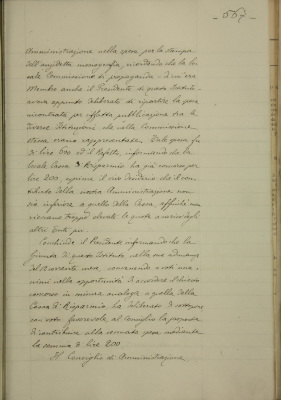 - 667 -
Amministrazione nella spesa per la stampa
dell'anzidetta monografia, ricordando che la lo-
cale Commissione di propaganda - di cui era
Membro anche il Presidente di questo Istituto -
aveva appunto deliberato di ripartire la spesa
incontrata per siffatta pubblicazione tra le
diverse Istituzioni che nella Commissione
stessa erano rappresentate. Tale spesa fu
di lire 800 ed il Prefetto, informando che la
locale Cassa di Risparmio ha già concorso per
lire 200, esprime il vivo desiderio che il con-
tributo della nostra Amministrazione non
sia inferiore a quello della Cassa, affinché non
riescano troppo elevate le quote a carico degli
altri Enti più
Conchiude il Presidente informando che la
Giunta di questo Istituto, nella sua adunanza
del corrente mese, convenendo
nella opportunità di accordare il chiesto
concorso in misura analoga a quella della
Cassa di Risparmio, ha deliberato di sottoporre
con voto favorevole al Consiglio la proposta
di contribuire alla cennata spesa mediante
la somma di lire 200.
Il Consiglio di Amministrazione